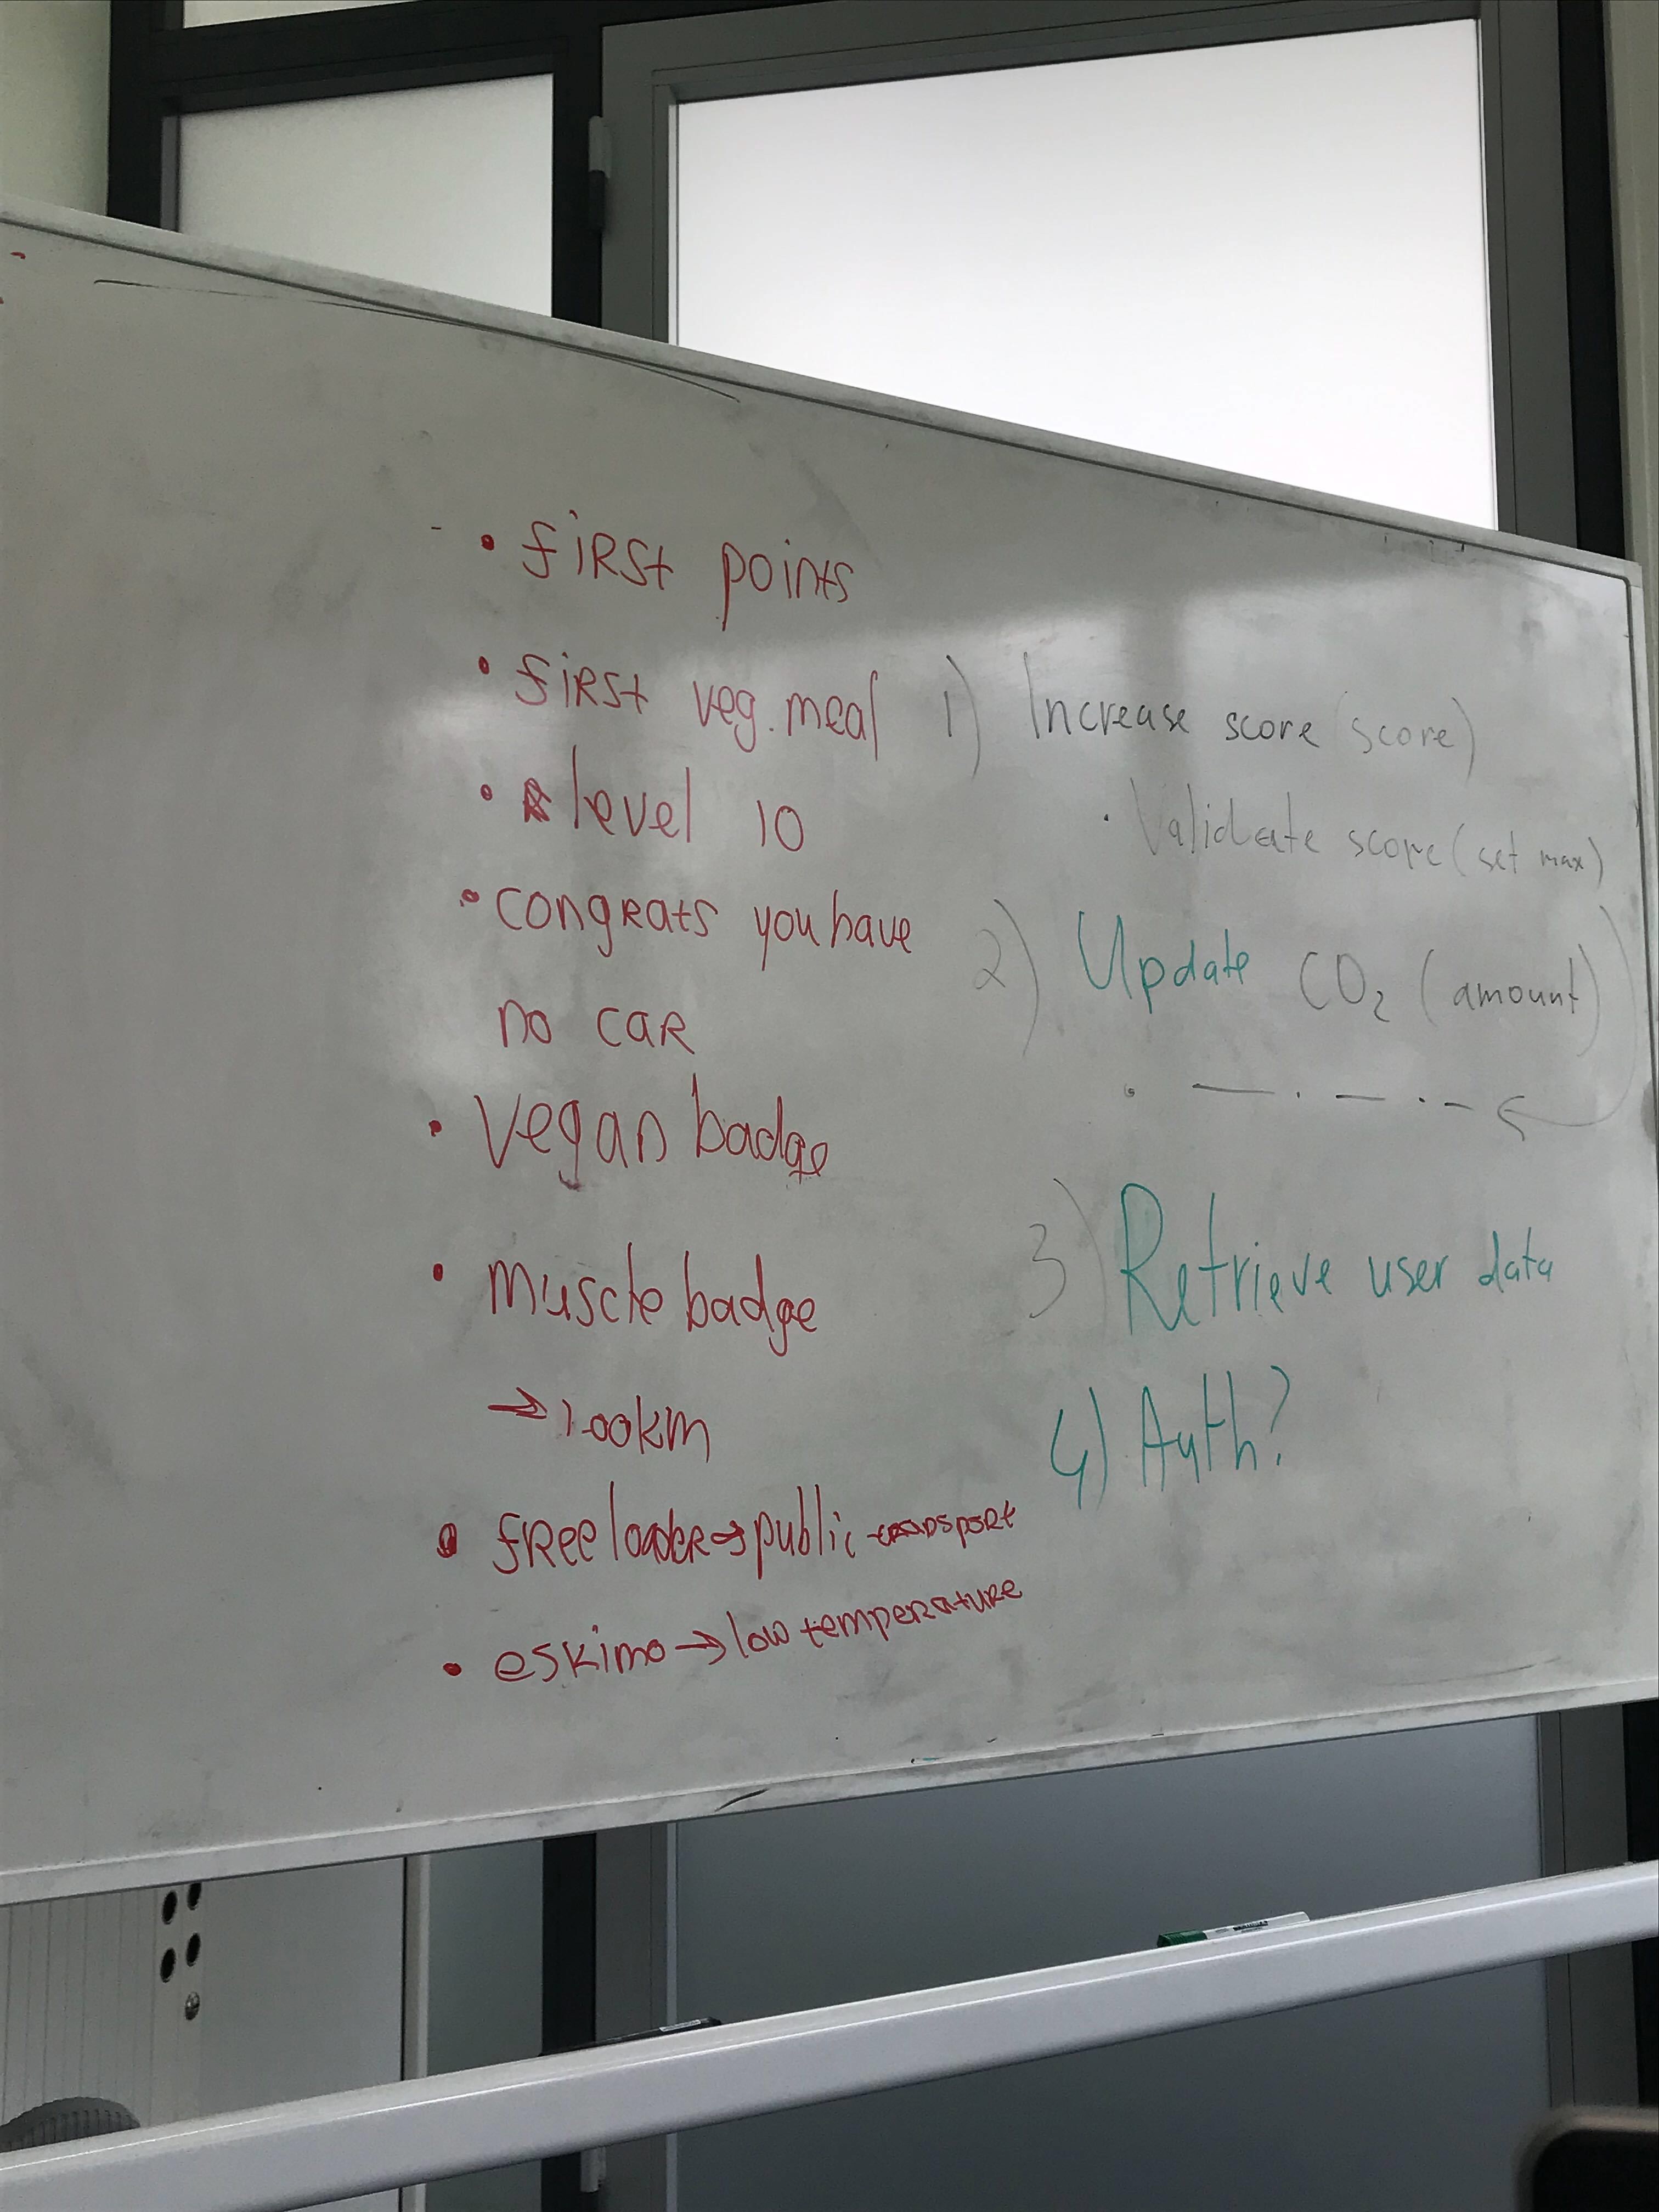 • first points
• first veg. meal
• level 10
• congrats you have
no car
• Vegan badge
• muscle badge
→ 100km
• freeloader → public transport
• eskimo → low temperature
1) Increase score (score)
• Validate score (set max)
2) Update CO₂ (amount)
3) Retrieve user data
4) Auth?